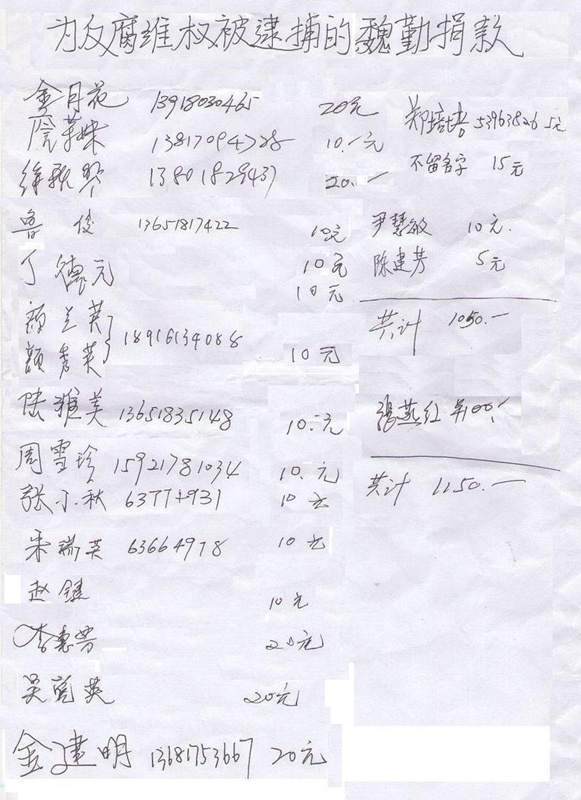 为反腐维权被逮捕的魏勤捐款
金月花 13918030465 20元
13817094728 10.-元
徐 13801829437 20.-
鲁俊 13651817422 10元
丁德元 10元
10元
颜兰英
颜秀英 18916134088 10元
陆雅美 13651835148 10.-元
周雪珍 15921781034 10.元
张小秋 6377+931 10元
朱瑞英 63664978 10元
赵健 10元
李惠芳 20元
吴英 20元
金建明 13681753667 20元
郑培培 53963826 5元
不留名字 15元
尹慧敏 10元.
陈建芳 5元
共计 1050.-
張燕红 100.-
共计 1150.-